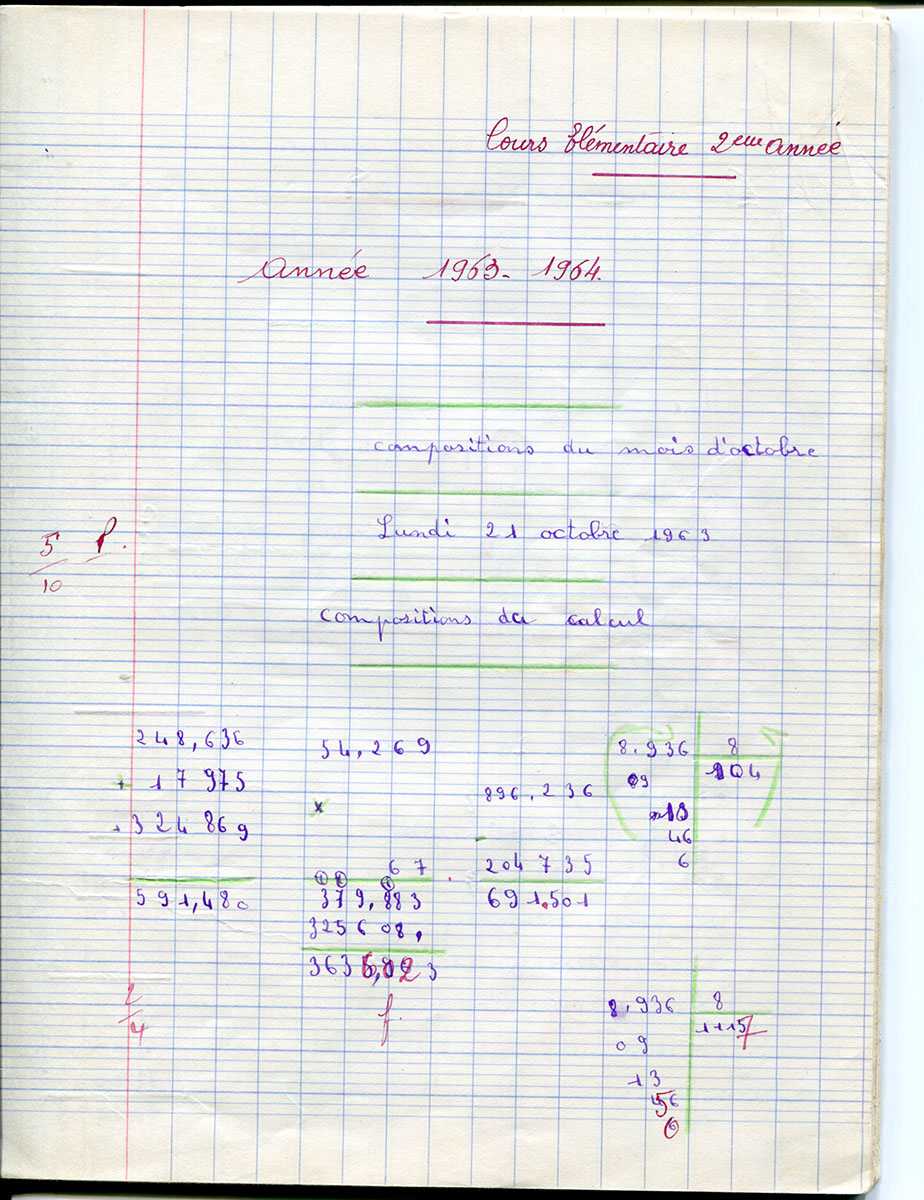 Cours Elémentaire 2eme année
Année 1963-1964.
compositions du mois d'octobre
Lundi 21 octobre 1963
5 P.
10
compositions de calcul
248,636
+ 17 975
+ 324 869
591,480
54,269
×
67
379,883
325608.
363 3
f.
896.236
- 204 735
691.501
8.936 8
104
09
13
46
6
2
4
8.936 8
1117
09
13
56
0